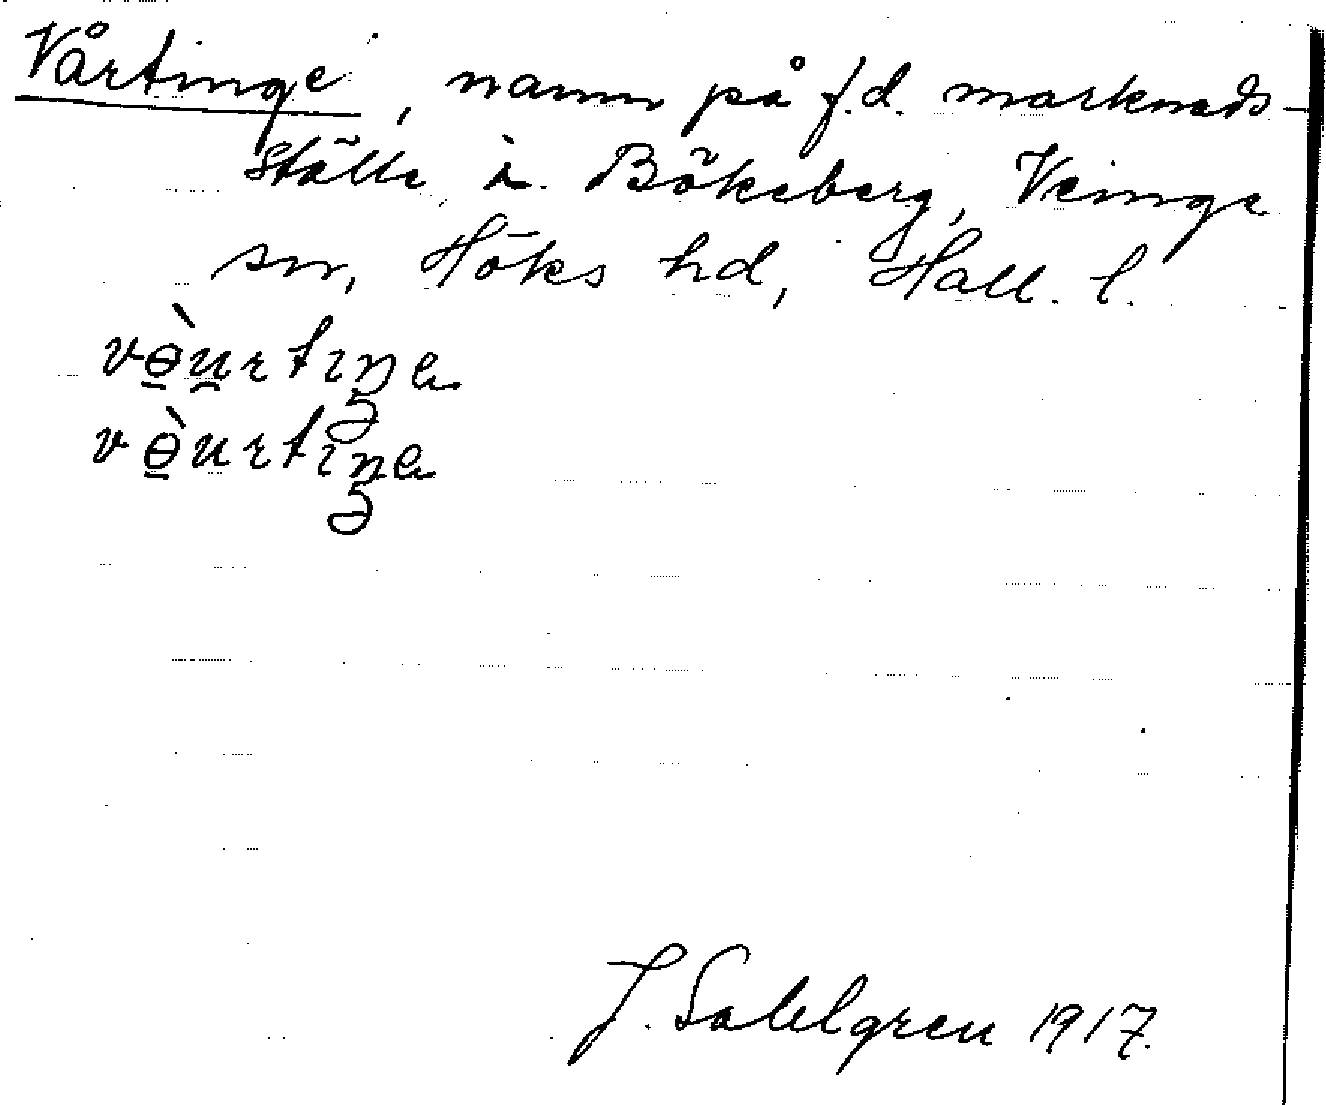 Vårtinge, namn på f.d. marknads-
ställe i Bökeberg, Veinge
sn, Höks hd, Hall. l.
vɵ̀urtıŋa
vɵ̀urtıŋa
J. Sahlgren 1917.